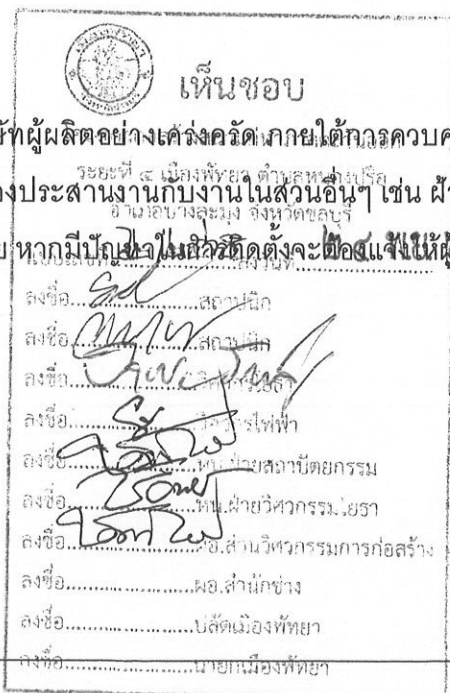 เห็นชอบ
ษัทผู้ผลิตอย่างเคร่งครัด ภายใต้การควบคุ
ระยะที่ ๔ เมืองพัทยา ตำบลหนองปรือ
องประสานงานกับงานในส่วนอื่นๆ เช่น ฝ้า
อำเภอบางละมุง จังหวัดชลบุรี
ย หากมีปัญหาในการติดตั้งจะต้องแจ้งให้ผู้
ลงชื่อ....................สถาปนิก
ลงชื่อ....................สถาปนิก
ลงชื่อ....................วิศวกรโยธา
ลงชื่อ....................วิศวกรไฟฟ้า
ลงชื่อ....................หน.ฝ่ายสถาปัตยกรรม
ลงชื่อ....................หน.ฝ่ายวิศวกรรมโยธา
ลงชื่อ....................ผอ.ส่วนวิศวกรรมการก่อสร้าง
ลงชื่อ....................ผอ.สำนักช่าง
ลงชื่อ....................ปลัดเมืองพัทยา
ลงชื่อ....................นายกเมืองพัทยา